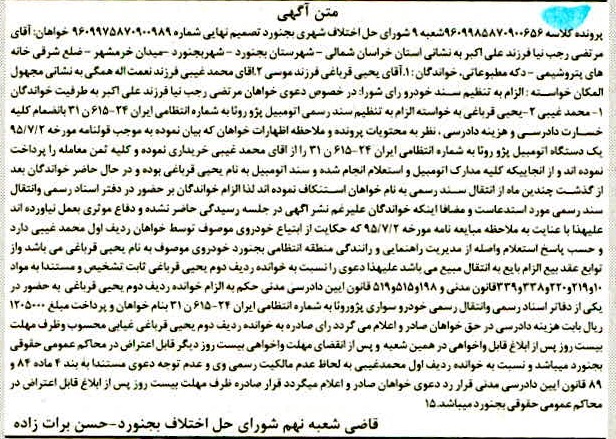 متن آگهی
پرونده کلاسه ۹۶۰۹۹۸۵۸۷۰۹۰۰۶۵۶شعبه ۹ شورای حل اختلاف شهری بجنورد تصمیم نهایی شماره ۹۶۰۹۹۷۵۸۷۰۹۰۰۹۸۹ خواهان: آقای
مرتضی رجب نیا فرزند علی اکبر به نشانی استان خراسان شمالی - شهرستان بجنورد - شهربجنورد -میدان خرمشهر - ضلع شرقی خانه
های پتروشیمی - دکه مطبوعاتی. خواندگان : ۱.آقای یحیی قرباغی فرزند موسی ۲.اقای محمد غیبی فرزند نعمت اله همگی به نشانی مجهول
المکان خواسته : الزام به تنظیم سند خودرو رای شورا: در خصوص دعوی خواهان مرتضی رجب نیا فرزند علی اکبر به طرفیت خواندگان
۱- محمد غیبی ۲-یحیی قرباغی به خواسته الزام به تنظیم سند رسمی اتومبیل پژو روئا به شماره انتظامی ایران ۲۴-۶۱۵ ن ۳۱ بانضمام کلیه
خسارت دادرسی و هزینه دادرسی ، نظر به محتویات پرونده و ملاحظه اظهارات خواهان که بیان نموده به موجب قولنامه مورخه ۹۵/۷/۲
یک دستگاه اتومبیل پژو روئا به شماره انتظامی ایران ۲۴-۶۱۵ ن ۳۱ را از اقای محمد غیبی خریداری نموده و کلیه ثمن معامله را پرداخت
نموده اند و از انجاییکه کلیه مدارک اتومبیل و استعلام انجام شده و سند اتومبیل به نام یحیی قرباغی بوده و در حال حاضر خواندگان بعد
از گذشت چندین ماه از انتقال سند رسمی به نام خواهان استنکاف نموده اند لذا الزام خواندگان بر حضور در دفتر اسناد رسمی وانتقال
سند رسمی مورد استدعاست و مضافا اینکه خواندگان علیرغم نشر اگهی در جلسه رسیدگی حاضر نشده و دفاع موثری بعمل نیاورده اند
علیهذا با عنایت به ملاحظه مبایعه نامه مورخه ۹۵/۷/۲ که حکایت از ابتیاع خودروی موصوف توسط خواهان ردیف اول محمد غیبی دارد
و حسب پاسخ استعلام واصله از مدیریت راهنمایی و رانندگی منطقه انتظامی بجنورد خودروی موصوف به نام یحیی قرباغی می باشد واز
توابع عقد بیع الزام بایع به انتقال مبیع می باشد علیهذا دعوی را نسبت به خوانده ردیف دوم یحیی قرباغی ثابت تشخیص و مستندا به مواد
۱۰و۲۱۹و۲۲۰و۳۳۸و۳۳۹قانون مدنی و ۱۹۸و۵۱۵و۵۱۹ قانون ایین دادرسی مدنی حکم به الزام خوانده ردیف دوم یحیی قرباغی به حضور در
یکی از دفاتر اسناد رسمی وانتقال رسمی خودرو سواری پژوروئا به شماره انتظامی ایران ۲۴-۶۱۵ ن ۳۱ بنام خواهان و پرداخت مبلغ ۱۲۰۵۰۰۰
ریال بابت هزینه دادرسی در حق خواهان صادر و اعلام می گردد رای صادره به خوانده ردیف دوم یحیی قرباغی غیابی محسوب وظرف مهلت
بیست روز پس از ابلاغ قابل واخواهی در همین شعبه و پس از انقضای مهلت واخواهی بیست روز دیگر قابل اعتراض در محاکم عمومی حقوقی
بجنورد میباشد و نسبت به خوانده ردیف اول محمدغیبی به لحاظ عدم مالکیت رسمی وی و عدم توجه دعوی مستندا به بند ۴ ماده ۸۴ و
۸۹ قانون ایین دادرسی مدنی قرار رد دعوی خواهان صادر و اعلام میگردد قرار صادره ظرف مهلت بیست روز پس از ابلاغ قابل اعتراض در
محاکم عمومی حقوقی بجنورد میباشد.۱۵
قاضی شعبه نهم شورای حل اختلاف بجنورد-حسن برات زاده